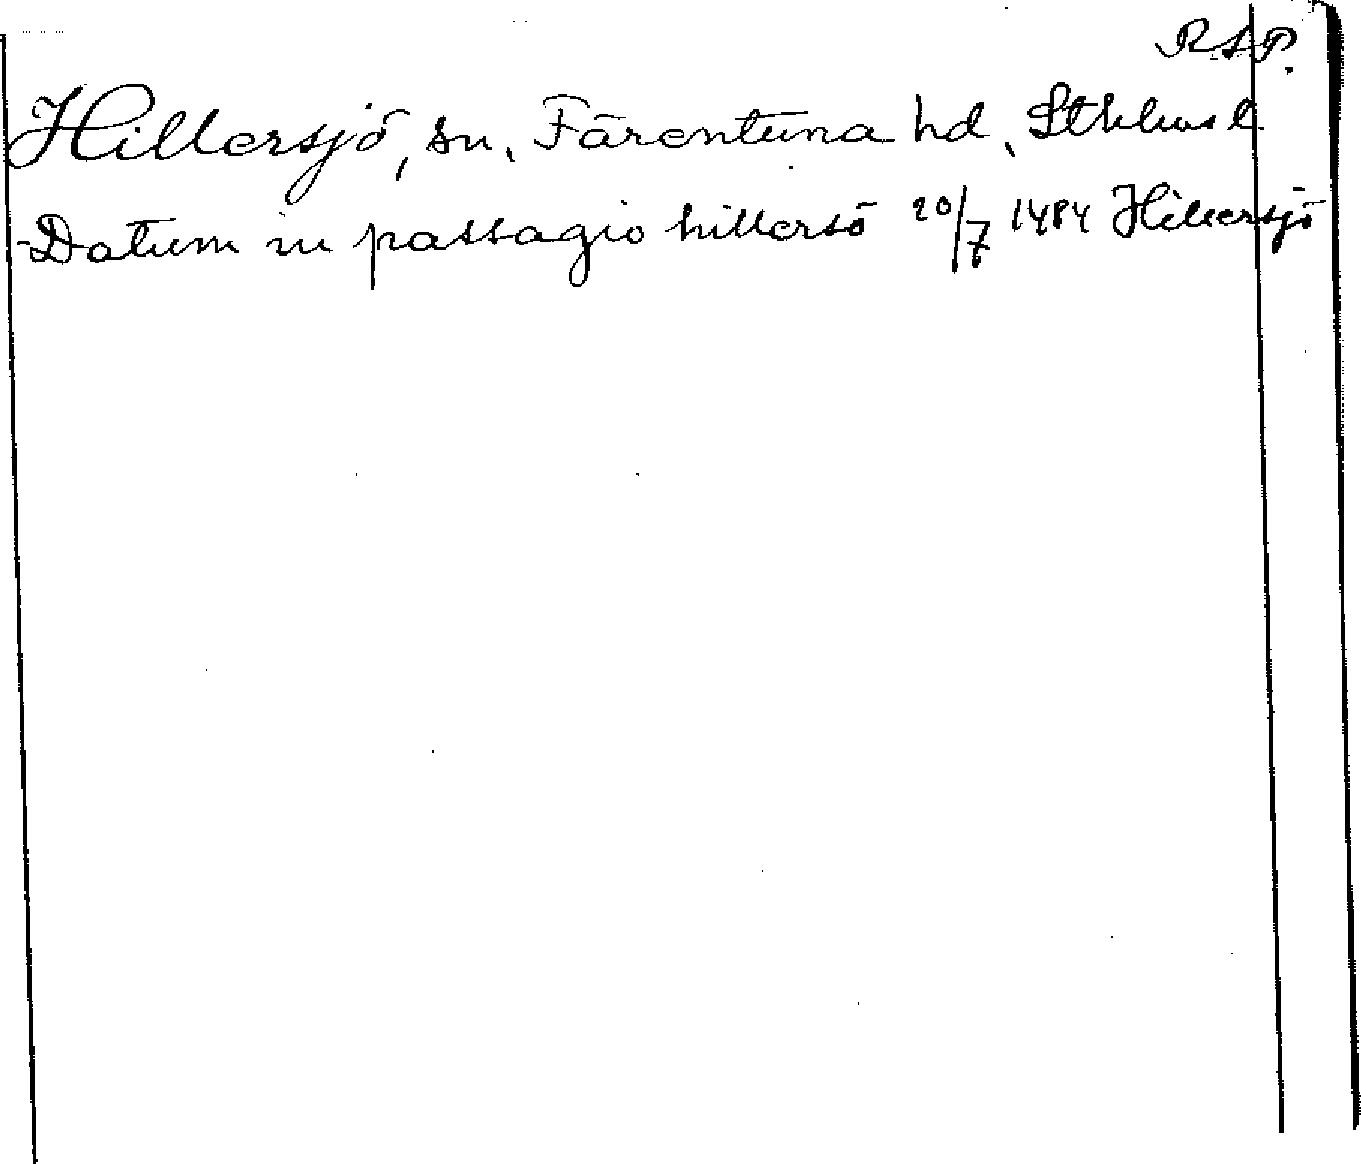 RAP.
Hillersjö, sn, Färentuna hd, Sthlms l
Datum in passagio hillersö 20/7 1484 Hillersjö